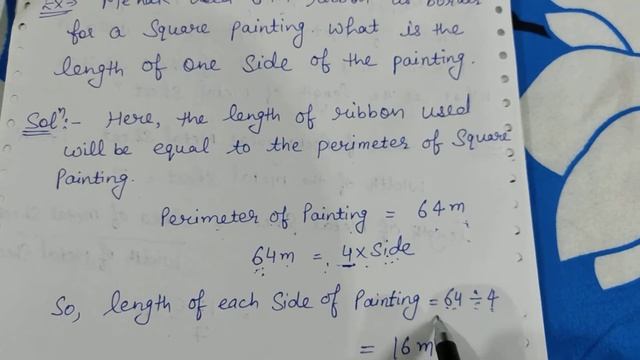 Ex:-
for a Square painting. What is the
length of one side of the painting.
Solⁿ:- Here, the length of ribbon used
will be equal to the perimeter of Square
Painting.
Perimeter of Painting = 64m
64m = 4×Side
So, length of each Side of Painting = 64 ÷ 4
= 16m